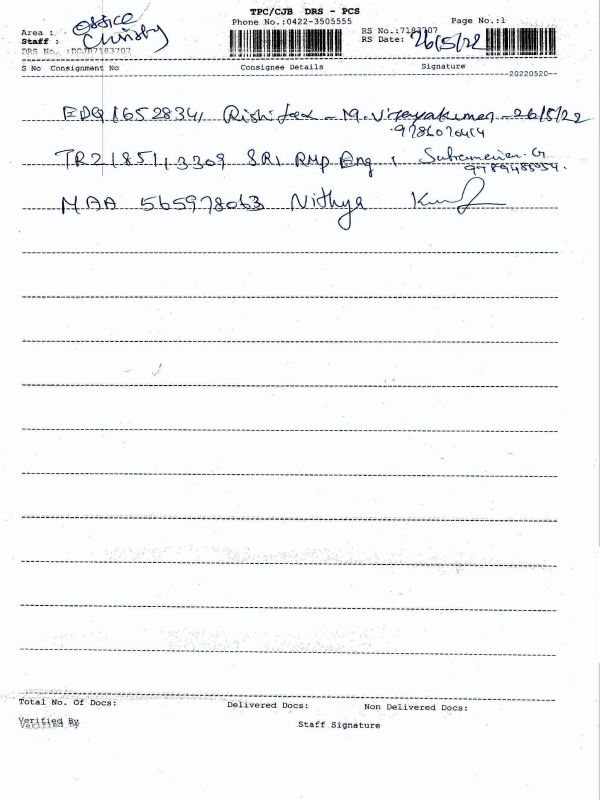 TPC/CJB DRS - PCS
Phone No.:0422-3505555
Page No.:1
Area : Office
Staff : Christy
DRS No. :DCJB7183707
RS No.:7183707
RS Date: 26/5/22
S No Consignment No Consignee Details Signature
20220520
EDQ 1652834, Rishi fax - M. Vijayakumar - 26/5/22
TR2185113309 SRI RMP Eng ,
9789488954.
MAA 565978063 Nithya
Total No. Of Docs: Delivered Docs: Non Delivered Docs:
Verified By
Staff Signature